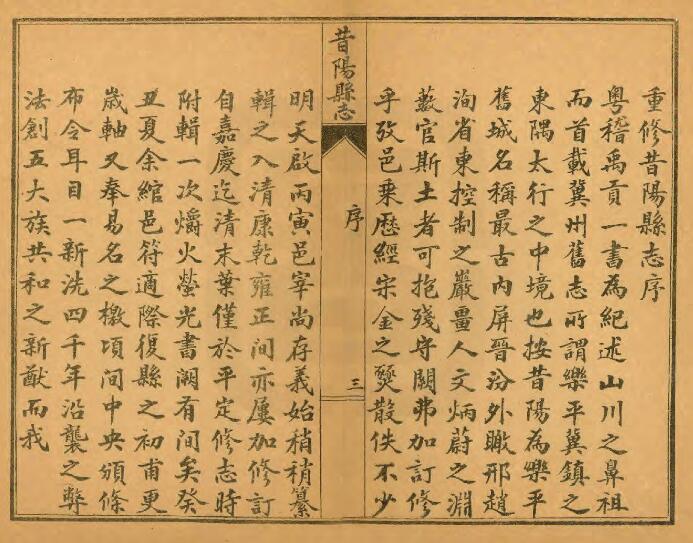 重修昔陽縣志序
粵稽禹貢一書為紀述山川之鼻祖
而首載冀州舊志所謂樂平冀鎮之
東隅太行之中境也按昔陽為樂平
舊城名稱最古內屏晉汾外瞰邢趙
洵省東控制之嚴畺人文炳蔚之淵
藪官斯土者可抱殘守闕弗加訂修
乎攷邑乘歷經宋金之燹散佚不少
昔陽縣志
序
三
明天啟丙寅邑宰尚存義始稍稍纂
輯之入清康乾雍正間亦屢加修訂
自嘉慶迄清末葉僅於平定修志時
附輯一次爝火螢光書闕有間矣癸
丑夏余綰邑符適際復縣之初甫更
歲軸又奉易名之檄頃間中央頒條
布令耳目一新洗四千年沿襲之弊
法創五大族共和之新猷而我